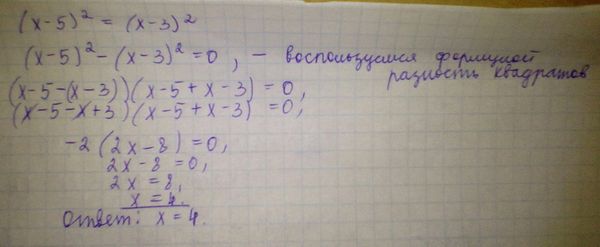 (x-5)² = (x-3)²
(x-5)² - (x-3)² = 0, - воспользуемся формулой
разность квадратов
(x-5-(x-3))(x-5+x-3) = 0,
(x-5-x+3)(x-5+x-3) = 0,
-2(2x-8) = 0,
2x-8 = 0,
2x = 8,
x = 4.
Ответ: x = 4.